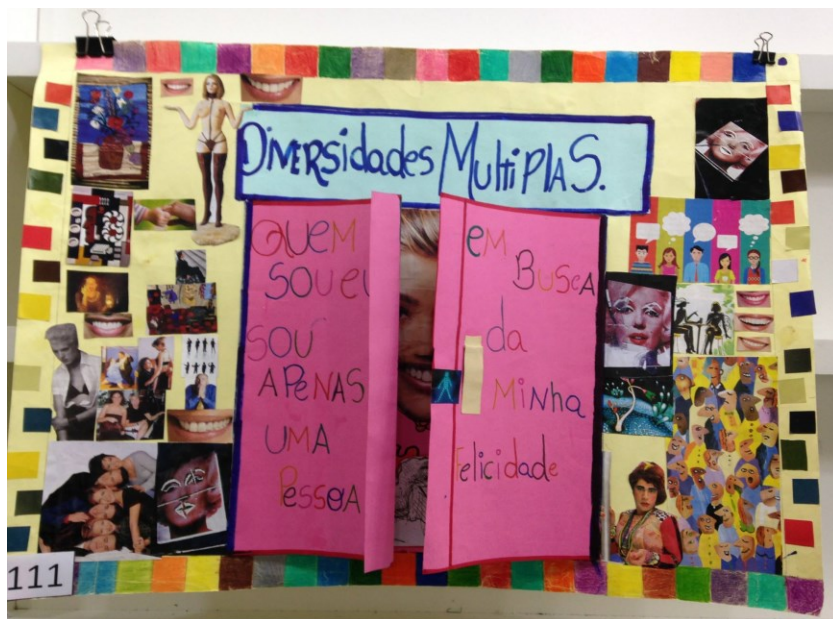 DIVERSidades MultiplAS.
QUEM
SOU EU
SOU
APENAS
UMA
PessoA
eM
BUScA
da
MiNha
Felicidade
111